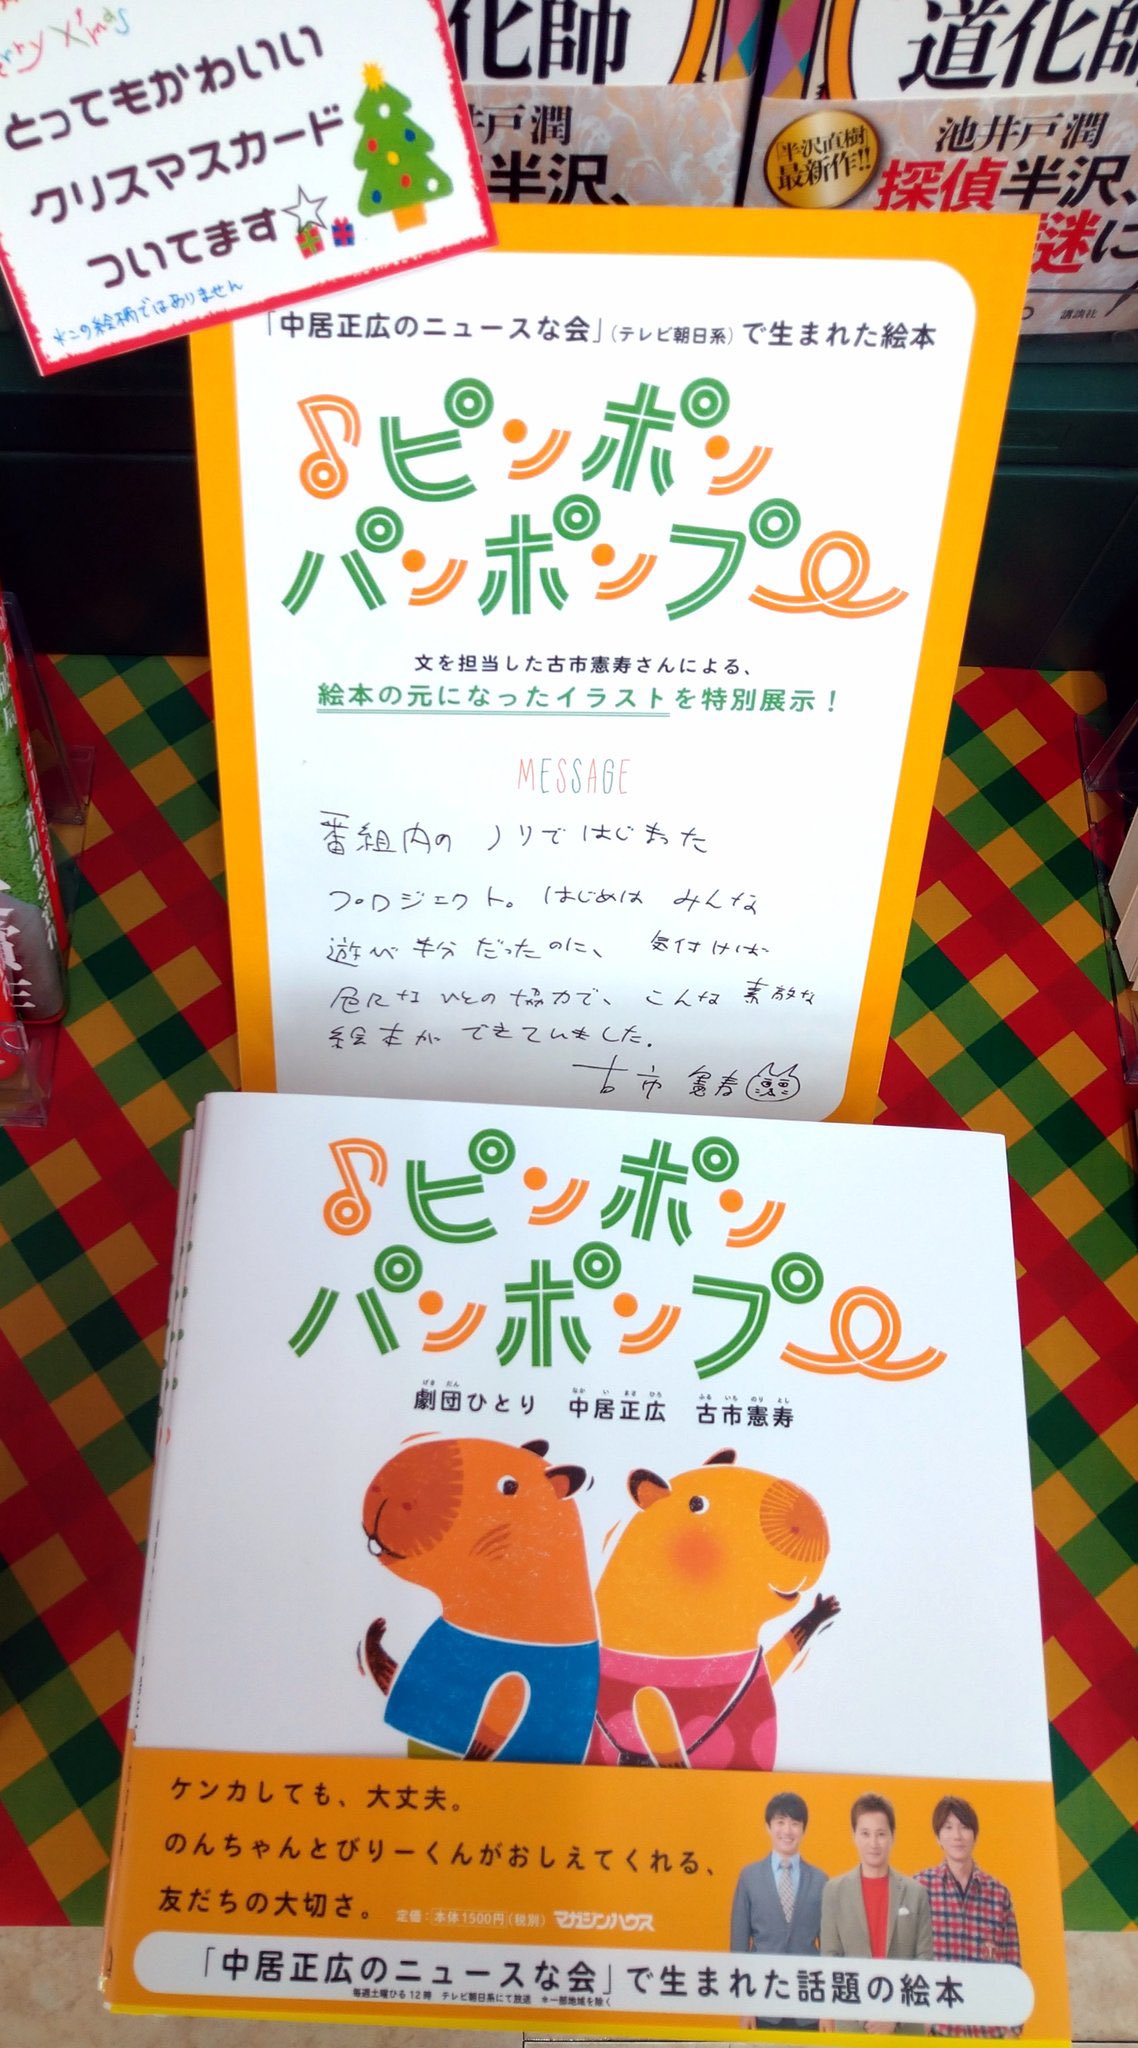 erry X'mas
とってもかわいい
クリスマスカード
ついてます☆
*この絵柄ではありません
化師
井戸潤
半沢、
道化師
「半沢直樹」
最新作!!
池井戸潤
探偵半沢、
謎に
講談社
「中居正広のニュースな会」(テレビ朝日系)で生まれた絵本
♪ピンポン
パンポンプー
文を担当した古市憲寿さんによる、
絵本の元になったイラストを特別展示!
MESSAGE
番組内の ノリではじまった
プロジェクト。はじめは みんな
遊び半分だったのに、気付けば
色々なひとの協力で、こんな素敵な
絵本ができていました。
古市 憲寿
♪ピンポン
パンポンプー
げきだん なかいまさひろ ふるいちのりとし
劇団ひとり 中居正広 古市憲寿
ケンカしても、大丈夫。
のんちゃんとびりーくんがおしえてくれる、
友だちの大切さ。
定価:本体1500円(税別) マガジンハウス
「中居正広のニュースな会」で生まれた話題の絵本
毎週土曜ひる12時 テレビ朝日系にて放送 *一部地域を除く